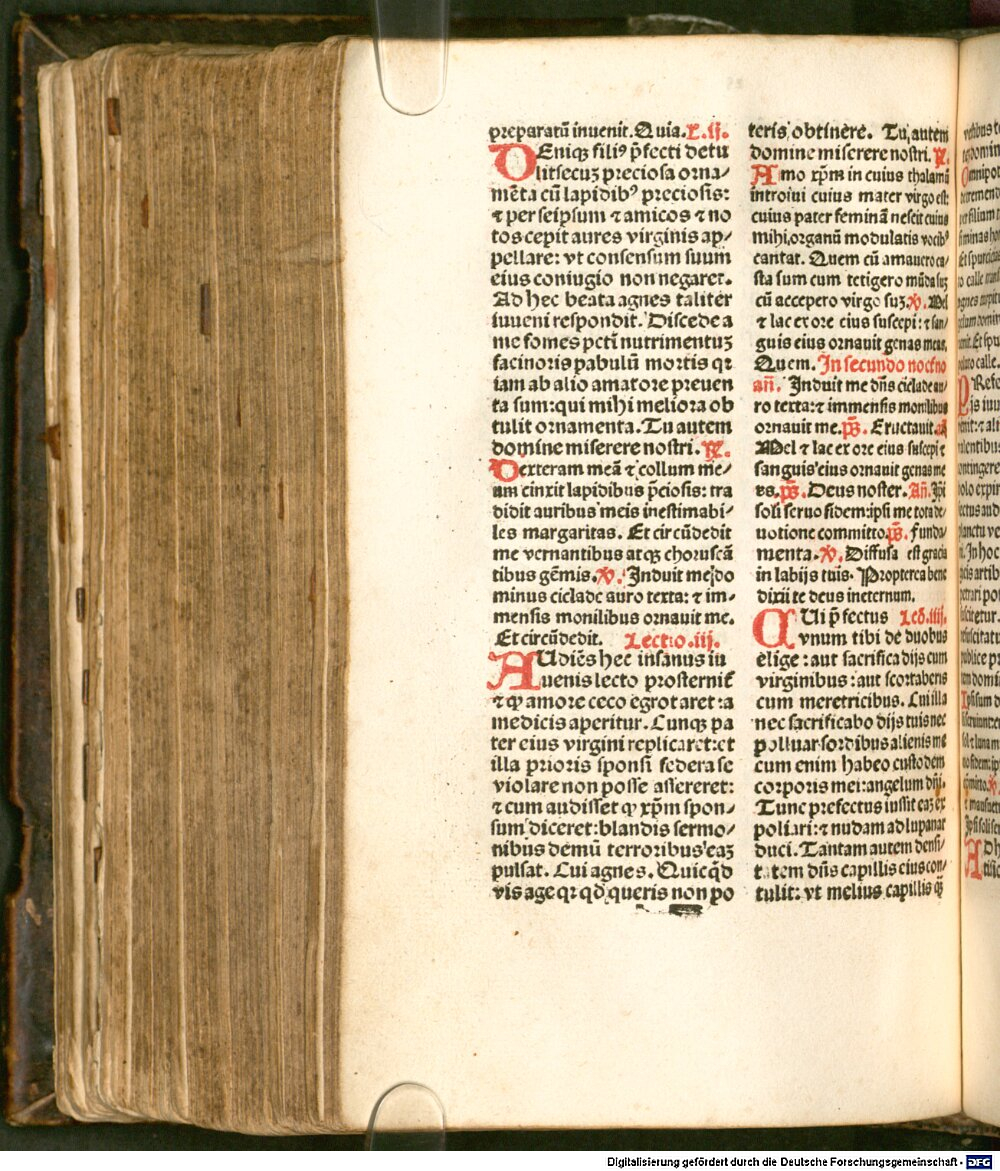 preparatū inuenit. Quia. L. ij.
DEniqꝫ filiꝰ p̄fecti detu
litsecuꝫ preciosa orna-
mēta cū lapidibꝰ preciosis:
⁊ per seipsum ⁊ amicos ⁊ no
tos cepit aures virginis ap-
pellare: vt consensum suum
eius coniugio non negaret.
Ad hec beata agnes taliter
iuueni respondit. Discede a
me fomes pcti nutrimentuꝫ
facinoris pabulū mortis qꝛ
iam ab alio amatore preuen
ta sum: qui mihi meliora ob
tulit ornamenta. Tu autem
domine miserere nostri. ℟.
Dexteram meā ⁊ collum me-
um cinxit lapidibus p̄ciosis: tra
didit auribus meis inestimabi-
les margaritas. Et circūdedit
me vernantibus atqꝫ choruscā
tibus gēmis. ℣. Induit me do
minus ciclade auro texta: ⁊ im-
mensis monilibus ornauit me.
Et circūdedit. Lectio .iij.
AUdiēs hec insanus iu
uenis lecto prosternit̄
⁊ qꝫ amore ceco egrotaret: a
medicis aperitur. Cunqꝫ pa
ter eius virgini replicaret: et
illa prioris sponsi federa se
violare non posse assereret:
⁊ cum audisset qꝫ xp̄m spon-
sum diceret: blandis sermo-
nibus demū terroribus eaꝫ
pulsat. Cui agnes. Quicq̄d
vis age qꝛ qd queris non po
teris obtinere. Tu autem
domine miserere nostri. ℟.
Amo xp̄m in cuius thalamū
introiui cuius mater virgo est:
cuius pater feminā nescit cuius
mihi organū modulatis vocibꝰ
cantat. Quem cū amauero ca-
sta sum cum tetigero mūda suꝫ
cū accepero virgo suꝫ. ℣. Mel
⁊ lac ex ore eius suscepi: ⁊ san-
guis eius ornauit genas meas.
Quem. In secundo nocťno
añ. Induit me dn̄s ciclade au-
ro texta: ⁊ immensis monilibus
ornauit me. ps̄. Eructauit. añ
Mel ⁊ lac ex ore eius suscepi ⁊
sanguis eius ornauit genas me
as. ps̄. Deus noster. Añ. Ipi
soli seruo fidem: ipsi me tota de-
uotione committo. ps̄. Funda-
menta. ℣. Diffusa est gracia
in labijs tuis. Propterea bene
dixit te deus ineternum.
CUi p̄fectus Lec̄. iiij.
vnum tibi de duobus
elige: aut sacrifica dijs cum
virginibus: aut scortaberis
cum meretricibus. Cui illa
nec sacrificabo dijs tuis nec
polluar sordibus alienis me
cum enim habeo custodem
corporis mei: angelum dn̄i.
Tunc prefectus iussit eaꝫ ex
poliari: ⁊ nudam ad lupanar
duci. Tantam autem densi-
tatem dn̄s capillis eius con-
tulit: vt melius capillis q̄ꝫ
Digitalisierung gefördert durch die Deutsche Forschungsgemeinschaft - DFG